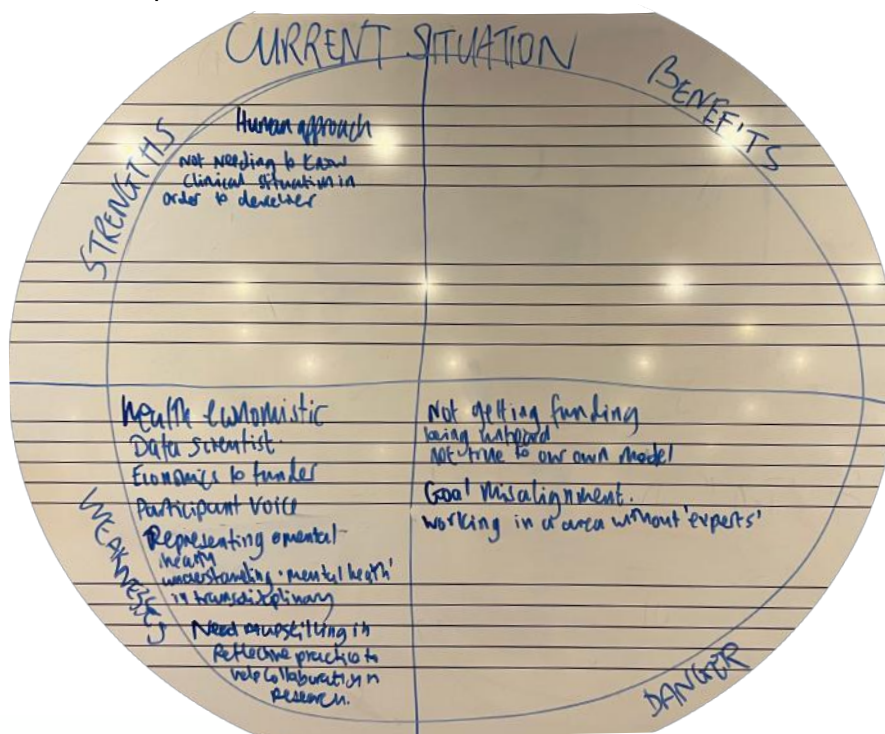 CURRENT SITUATION
STRENGTHS
Human approach
Not Needing to know
clinical situation in
order to
BENEFITS
WEAKNESSES
health
Data scientist.
Economics to funder
Participant voice
Representing mental
health
understanding 'mental health'
in
Need upskilling in
Reflective practice to
help collaboration in
research.
Not getting funding
being
not true to our own model
Goal misalignment.
working in a area without 'experts'
DANGER